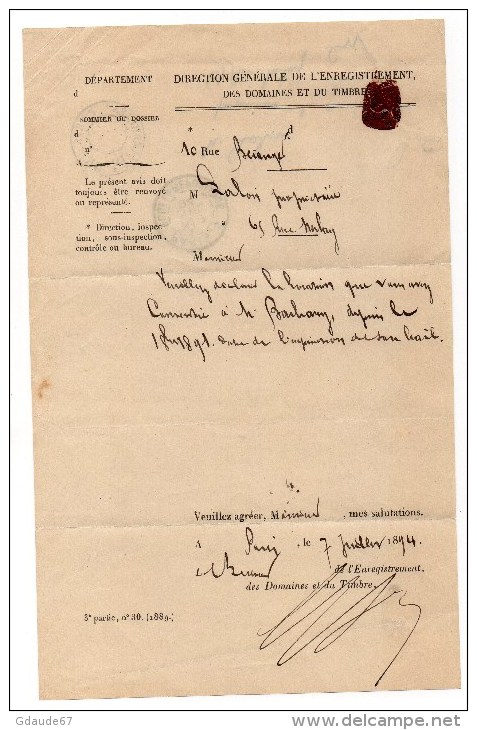 DÉPARTEMENT
d
SOMMIER OU DOSSIER
d
n°
Le présent avis doit
toujours être renvoyé
ou représenté.
* Direction, inspec-
tion, sous-inspection,
contrôle ou bureau.
DIRECTION GÉNÉRALE DE L'ENREGISTREMENT,
DES DOMAINES ET DU TIMBRE
* d
10 Rue Béranger
M propriétaire
65 Rue
Monsieur
Veuillez déclarer la location que vous avez
consentie à M depuis le
1891. date de l'expiration de son bail.
Veuillez agréer, Monsieur, mes salutations.
A Paris, le 7 Juillet 1894.
Le Receveur de l'Enregistrement,
des Domaines et du Timbre
3e partie, n° 30. (1889.)
Gdaude67
www.delcampe.net